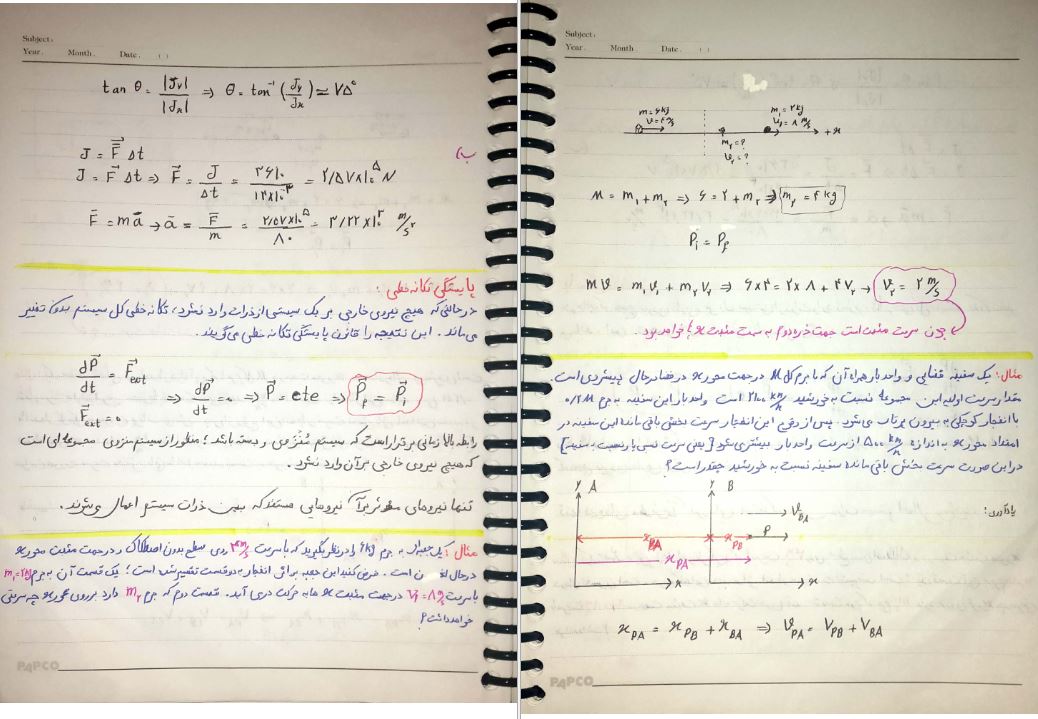 Subject:
Year. Month. Date. ( )
tan θ = |J_y| / |J_x| ⇒ θ = tan⁻¹ (J_y / J_x) ≃ ۷۵°
ب)
J = F̄ Δt
J = F̄ Δt ⇒ F̄ = J / Δt = ۳۶۱۰ / ۱۴×۱۰⁻³ = ۲/۵۷×۱۰⁵ N
F̄ = mā → ā = F̄ / m = ۲/۵۷×۱۰⁵ / ۸۰ = ۳/۲۲×۱۰³ m/s²
پایستگی تکانه خطی :
در حالتی که هیچ نیروی خارجی بر یک سیستمی از ذرات وارد نشود ، تکانه خطی کل سیستم بدون تغییر
می‌ماند . این نتیجه را قانون پایستگی تکانه خطی می‌گویند
dP/dt = F_ext
F_ext = ۰ ⇒ dP/dt = ۰ ⇒ P = cte ⇒ P_f = P_i
رابطه بالا زمانی برقرار است که سیستم مُنزَوی و بسته باشد ؛ منظور از سیستم منزوی مجموعه ای است
که هیچ نیروی خارجی بر آن وارد نشود .
تنها نیروهای مؤثر بر آن نیروهایی هستند که بین ذرات سیستم اعمال می‌شوند .
مثال : یک جعبه به جرم ۶kg را در نظر بگیرید که با سرعت ۴ m/s روی سطح بدون اصطکاک و در جهت مثبت محور x
در حال است . فرض کنید این جعبه بر اثر انفجار به دو قسمت تقسیم شده است ؛ یک قسمت آن به جرم m₁=۲kg
با سرعت v₁=۸ m/s در جهت مثبت x ها به حرکت در می آید . قسمت دوم که جرم m₂ دارد بر روی محور x چه سرعتی
خواهد داشت ؟
PAPCO
Subject:
Year. Month Date. ( )
m=۶kg
v=۴ m/s
m₁=۲kg
v₁=۸ m/s
m₂=?
v₂=?
+x
M = m₁+m₂ ⇒ ۶ = ۲+m₂ ⇒ m₂ = ۴ kg
P_i = P_f
Mv = m₁v₁ + m₂v₂ ⇒ ۶×۴ = ۲×۸ + ۴v₂ → v₂ = ۲ m/s
چون سرعت مثبت است جهت ذره دوم به سمت مثبت x ها خواهد بود .
مثال : یک سفینه فضایی و واحد بار همراه آن که با جرم کل M در جهت محور x در فضا در حال پیشروی است .
مقدار سرعت اولیه این مجموعه نسبت به خورشید ۲۱۰۰ km/h است واحد بار این سفینه به جرم ۰/۲M
با انفجار کوچکی به بیرون پرتاب می‌شود . پس از وقوع این انفجار سرعت بخش باقی مانده این سفینه در
امتداد محور x به اندازه ۵۰۰ km/h از سرعت واحد بار بیشتر می‌شود [یعنی سرعت نسبی بار نسبت به سفینه]
در این صورت سرعت بخش باقی مانده سفینه نسبت به خورشید چقدر است ؟
یادآوری :
y A
y B
v_BA
x_BA
x_PB
P
x_PA
x
x
x_PA = x_PB + x_BA ⇒ v_PA = v_PB + v_BA
PAPCO